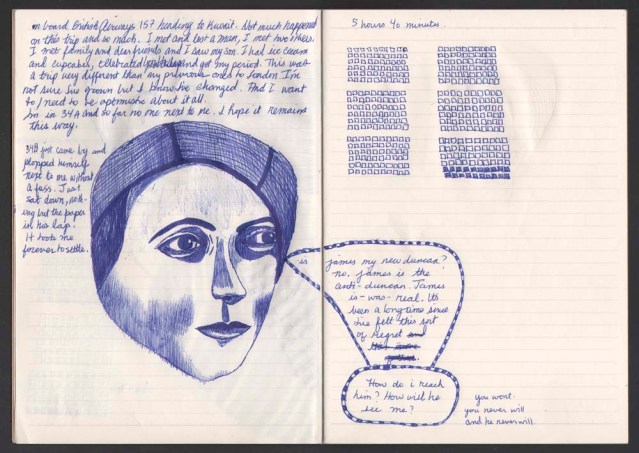 on board British Airways 157 heading to Kuwait. Not much happened
on this trip and so much. I met and lost a man, I met two others.
I met family and dear friends and I saw my son. I had ice cream
and cupcakes, celebrated and got my period. This was
a trip very different than my previous ones to London I'm
not sure I've grown but I know I've changed. And I want
to/need to be optimistic about it all.
I'm in 34A and so far no one next to me. I hope it remains
this way.
34B just came by and
plopped himself
next to me without
a fuss. Just
sat down, noth-
ing but the paper
in his lap.
It took me
forever to settle.
5 hours 40 minutes.
is
james my new duncan?
no, james is the
anti-duncan. James
is-was-real. It's
been a long time since
I've felt this sort
of regret
How do i reach
him? How will he
see me?
you wont.
you never will
and he never will.